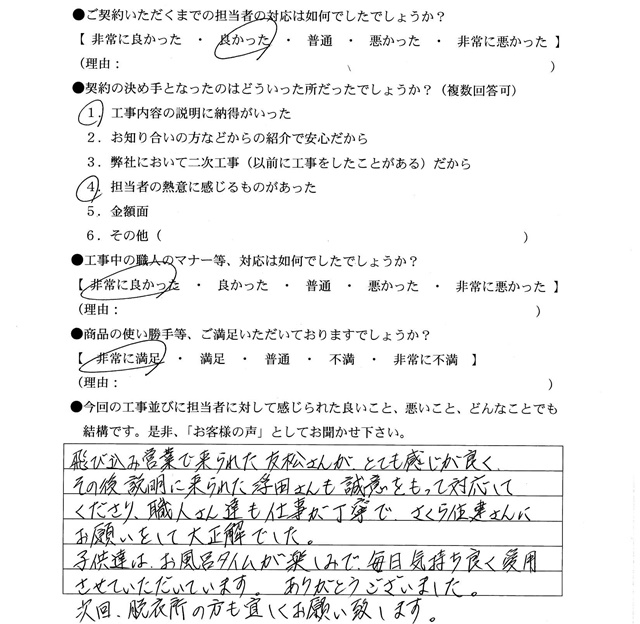 ●ご契約いただくまでの担当者の対応は如何でしたでしょうか？
【 非常に良かった ・ 良かった ・ 普通 ・ 悪かった ・ 非常に悪かった 】
(理由： )
●契約の決め手となったのはどういった所だったでしょうか？（複数回答可）
１．工事内容の説明に納得がいった
２．お知り合いの方などからの紹介で安心だから
３．弊社において二次工事（以前に工事をしたことがある）だから
４．担当者の熱意に感じるものがあった
５．金額面
６．その他（ ）
●工事中の職人のマナー等、対応は如何でしたでしょうか？
【 非常に良かった ・ 良かった ・ 普通 ・ 悪かった ・ 非常に悪かった 】
(理由： )
●商品の使い勝手等、ご満足いただいておりますでしょうか？
【 非常に満足 ・ 満足 ・ 普通 ・ 不満 ・ 非常に不満 】
(理由： )
●今回の工事並びに担当者に対して感じられた良いこと、悪いこと、どんなことでも
結構です。是非、「お客様の声」としてお聞かせ下さい。
飛び込み営業で来られた友松さんが、とても感じが良く、
その後説明に来られた 田さんも誠意をもって対応して
くださり、職人さん達も仕事が丁寧で、さくら住建さんに
お願いをして大正解でした。
子供達は、お風呂タイムが楽しみで、毎日気持ち良く愛用
させていただいています。 ありがとうございました。
次回、脱衣所の方も宜しくお願い致します。